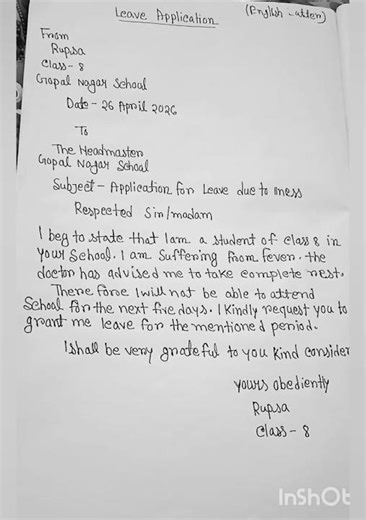 Leave Application
(English Letter)
From
Rupsa
Class - 8
Gopal Nagar School
Date - 26 April 2026
To
The Headmaster
Gopal Nagar School
Subject - Application for Leave due to Iness
Respected Sir/madam
I beg to state that I am a student of class 8 in
your School. I am Suffering from fever. the
doctor has advised me to take complete rest.
There fore I will not be able to attend
School for the next five days. I kindly request you to
grant me leave for the mentioned period.
I shall be very grateful to you kind consider
yours obediently
Rupsa
Class - 8
InShOt